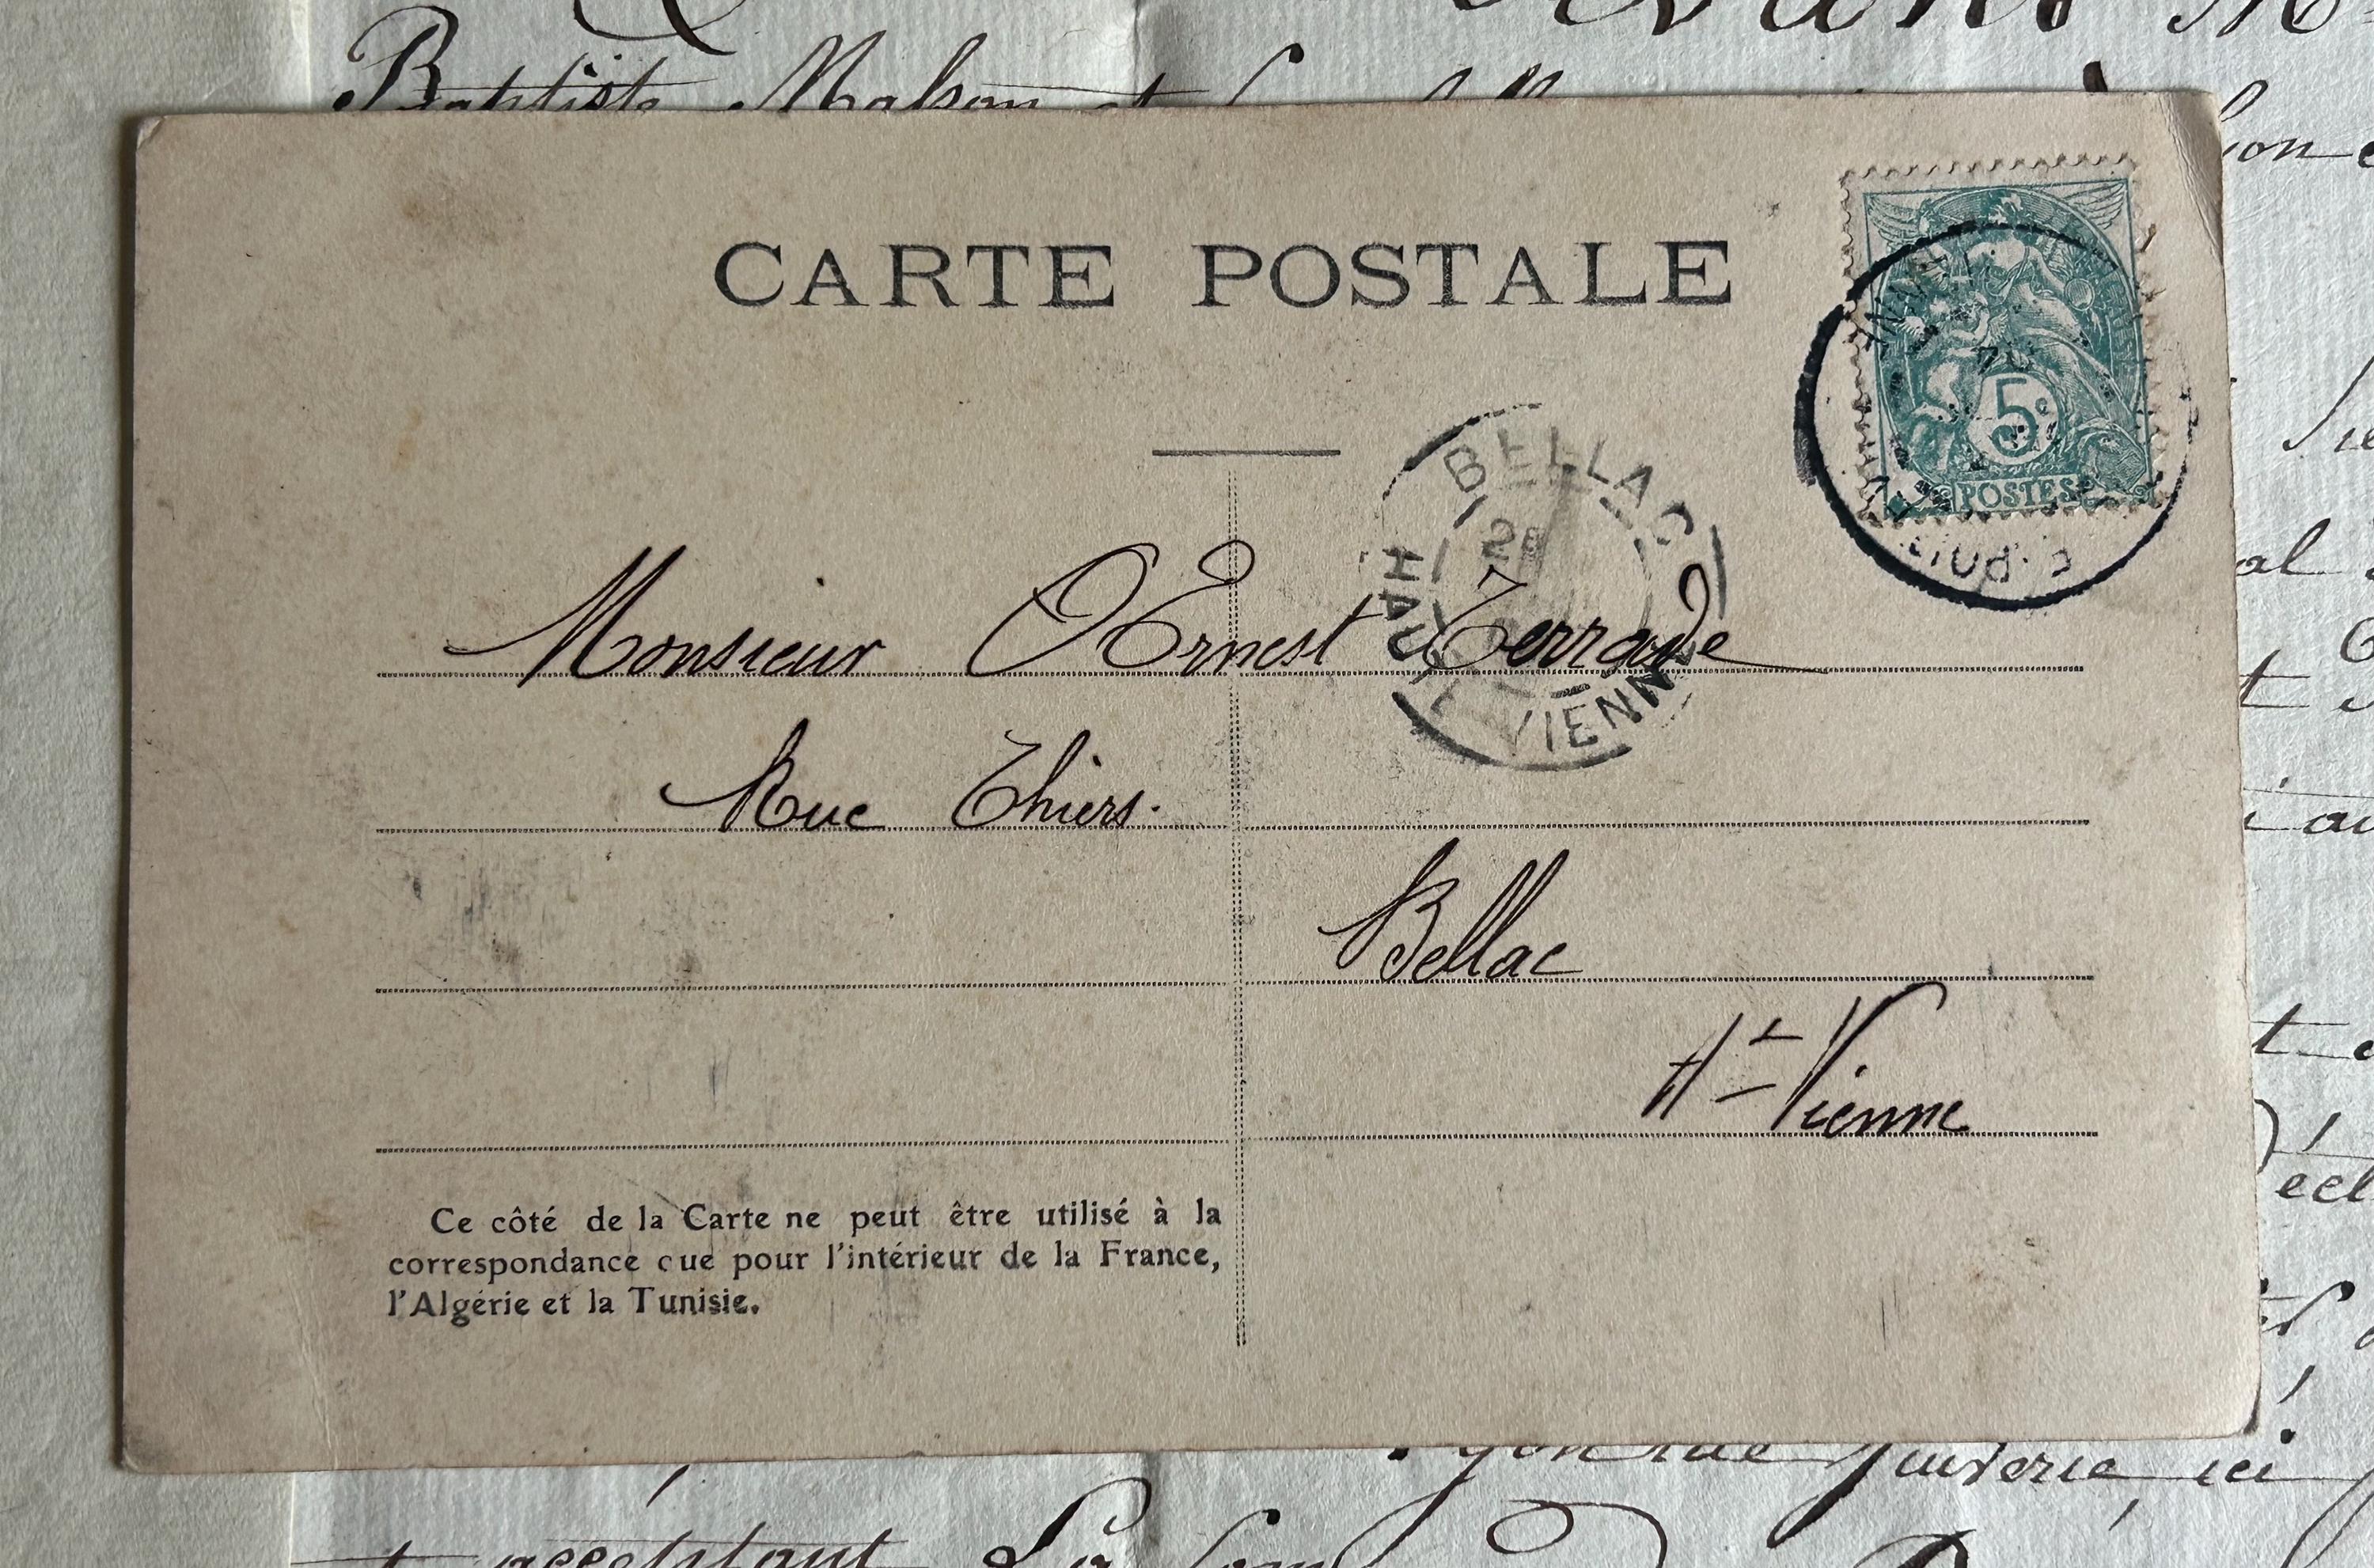 Baptiste Malson et
CARTE POSTALE
5c
POSTES
BELLAC
HAUTE VIENNE
Monsieur Ernest Terrade
Rue Thiers.
Bellac
Hte Vienne
Ce côté de la Carte ne peut être utilisé à la
correspondance que pour l'intérieur de la France,
l'Algérie et la Tunisie.
rue Juiverie ici
acceptant